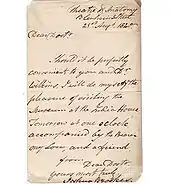 Theatre of Anatomy
Blenheim Street
21st Augt 182
Dear Doctr
Should it be perfectly
convenient to you and
Wilkins, I will do myself the
pleasure of visiting the
Museum at the India House
Tomorrow at one o'clock
accompanied by
my Son, and a friend
from
Dear Doctr
Yours most truly
Joshua Brookes